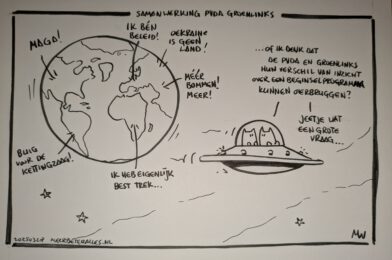 SAMENWERKING PVDA GROENLINKS
MAGA!
IK BÉN
BELEID!
OEKRAINE
IS GEEN
LAND!
MÉÉR
BOMMEN!
MEER!
BUIG
VOOR DE
KETTINGZAAG!
IK HEB EIGENLIJK
BEST TREK...
...OF IK DENK DAT
DE PVDA EN GROENLINKS
HUN VERSCHIL VAN INZICHT
OVER EEN BEGINSELPROGRAMMA
KUNNEN OVERBRUGGEN?
JEETJE WAT
EEN GROTE
VRAAG...
MEERBETERALLES.NL
MW